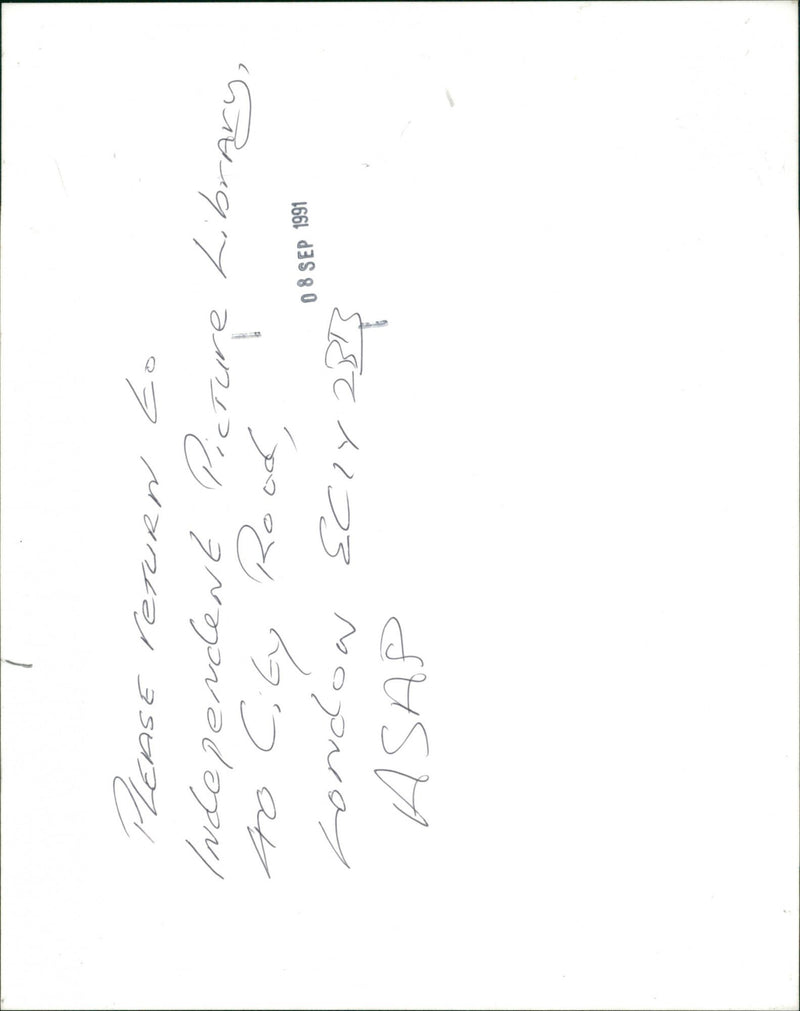 PLEASE reTURN to
Independent Picture Library,
40 City Road,
London EC1Y 2BB
ASAP
08 SEP 1991